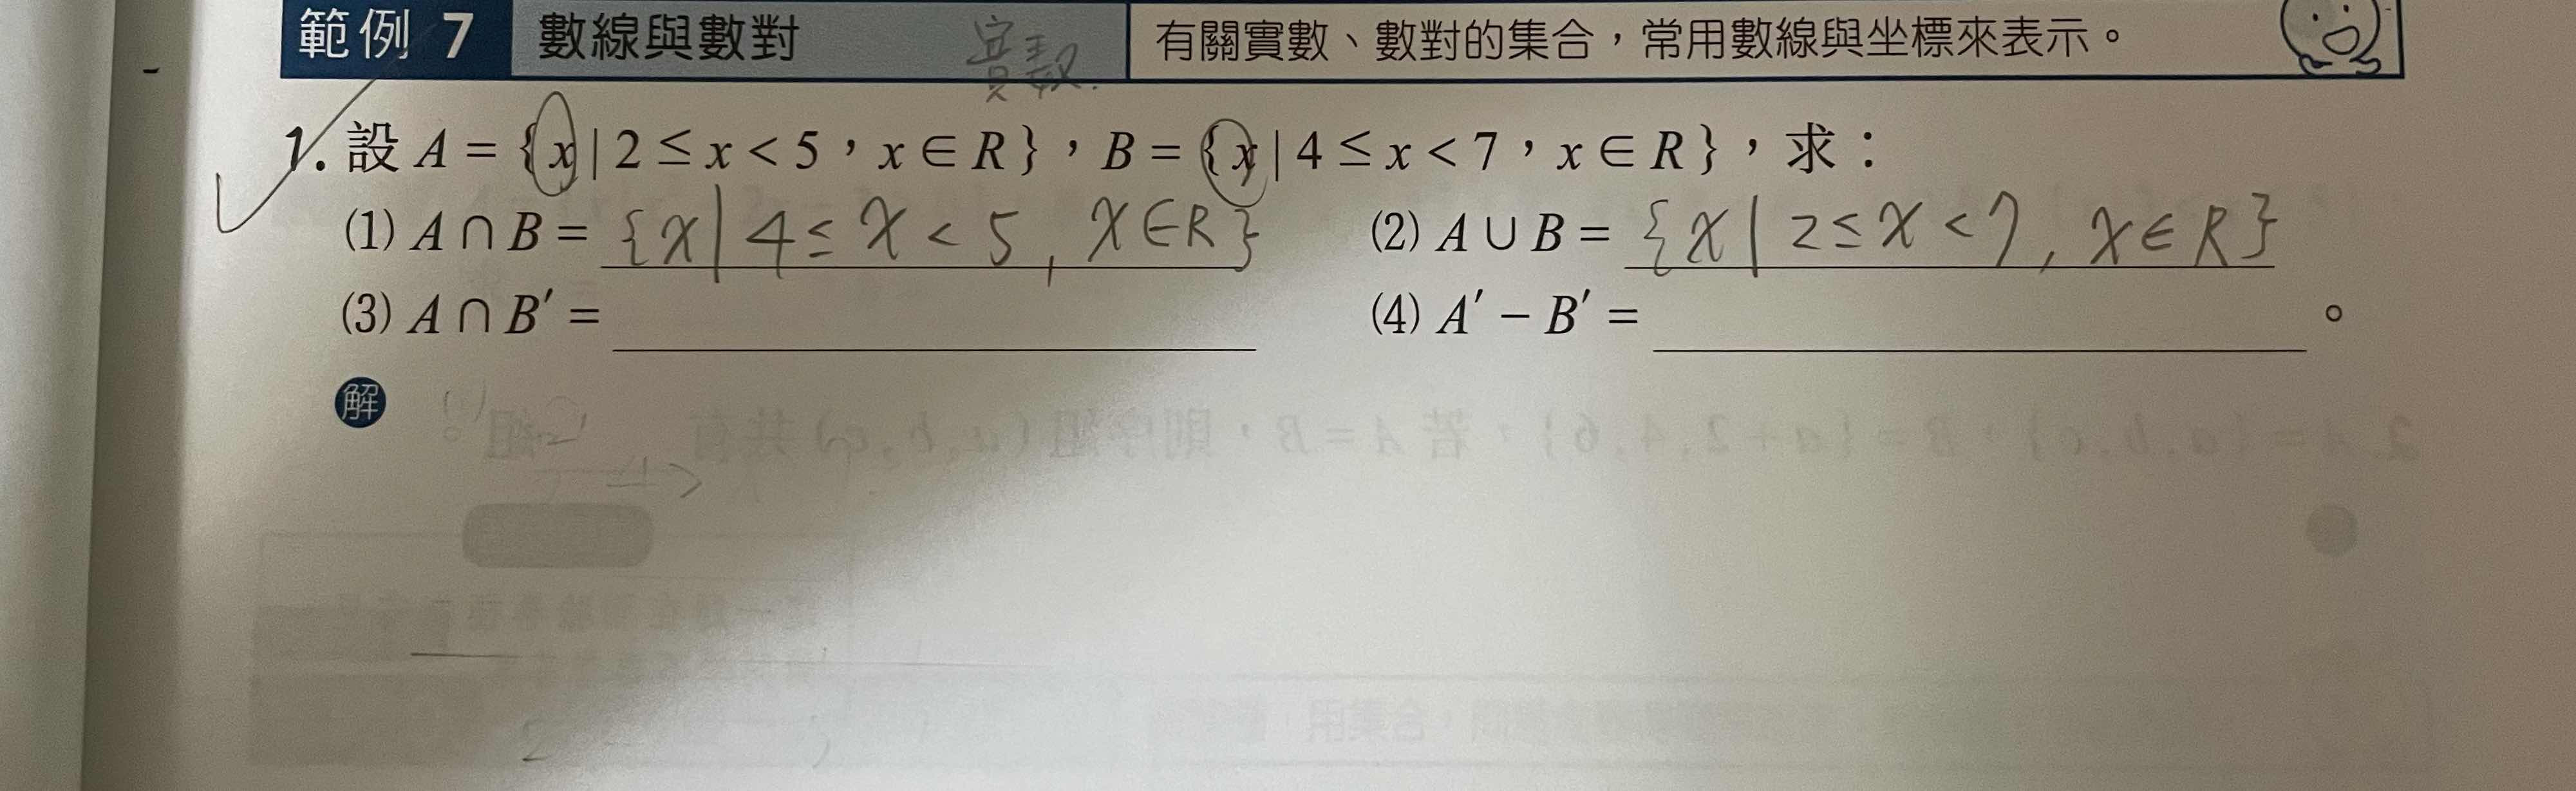 範例 7 數線與數對 實數. 有關實數、數對的集合，常用數線與坐標來表示。
1. 設 A = {x | 2 ≤ x < 5，x ∈ R}，B = {x | 4 ≤ x < 7，x ∈ R}，求：
(1) A ∩ B = {x | 4 ≤ x < 5, x ∈ R} (2) A ∪ B = {x | 2 ≤ x < 7, x ∈ R}
(3) A ∩ B′ = (4) A′ − B′ = 。
解 (1)